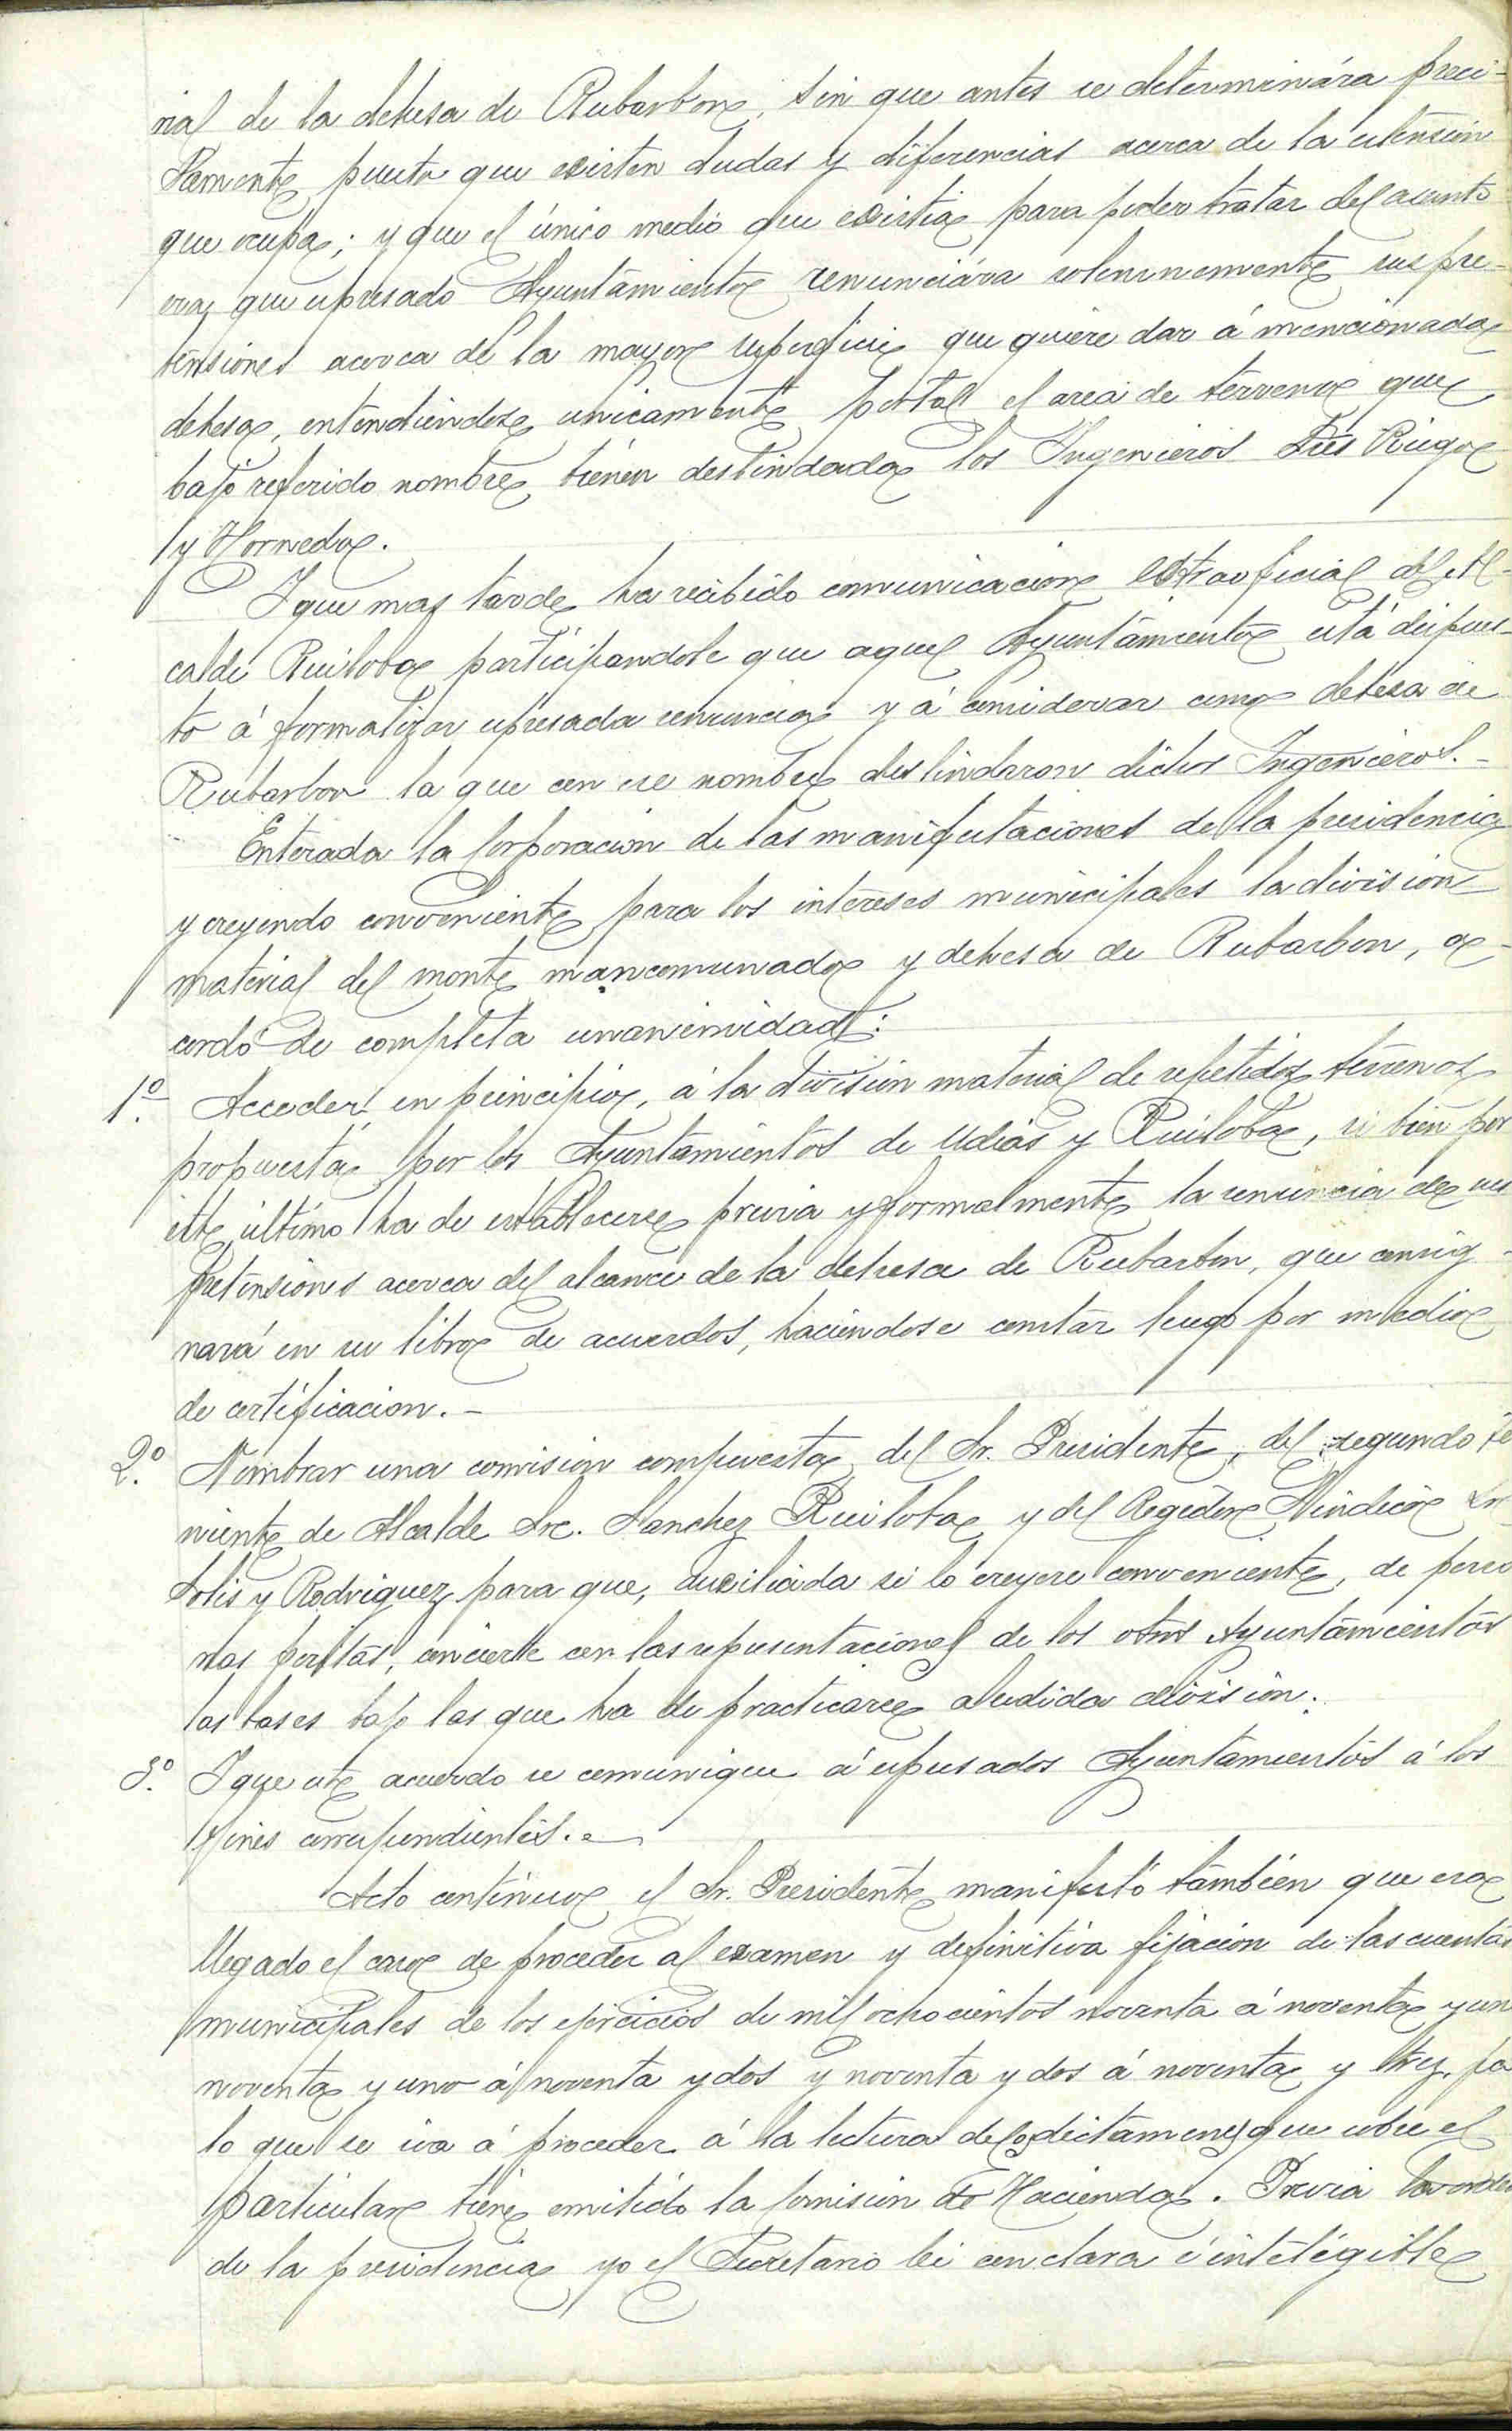 rial de la dehesa de Rubarbon, sin que antes se determinára preci-
samente puesto que existen dudas y diferencias acerca de la estension
que ocupa; y que el único medio que existia para poder tratar del asunto
era, que espresado Ayuntamiento renunciára solemnemente sus pre-
tensiones acerca de la mayor superficie que quiere dar á mencionada
dehesa, entendiendose unicamente por tal el area de terreno que
bajo referido nombre tienen deslindada los Ingenieros Sres Riego
y Hornedo.
Y que mas tarde ha recibido comunicacion extraoficial del Al-
calde Ruiloba participandole que aquel Ayuntamiento está dispues-
to á formalizar espresada renuncia y á considerar como dehesa de
Rubarbon la que con ese nombre deslindaron dichos Ingenieros.-
Enterada la Corporacion de las manifestaciones de la presidencia
y creyendo conveniente para los intereses municipales la division
material del monte mancomunado y dehesa de Rubarbon, a-
cordó de completa unanimidad:
1º. Acceder, en principio, á la division material de repetidos terrenos
propuesta por los Ayuntamientos de Udias y Ruiloba, si bien por
este último ha de establecerse previa y formalmente la renuncia de sus
pretensiones acerca del alcance de la dehesa de Rubarbon, que consig-
nará en su libro de acuerdos, haciendose constar luego por medio
de certificacion.-
2.º Nombrar una comision compuesta del Sr. Presidente, del segundo te
niente de Alcalde Sr. Sanchez Ruiloba y del Regidor Sindico Sr
Solis y Rodriguez para que, auxiliada si lo creyere conveniente, de perso
nas peritas, concierte con las representaciones de los otros Ayuntamientos
las bases bajo las que ha de practicarse aludida division.
3.º Y que este acuerdo se comunique á espresados Ayuntamientos á los
fines correspondientes.-
Acto contínuo el Sr. Presidente manifestó también que era
llegado el caso de proceder al examen y definitiva fijacion de las cuentas
municipales de los ejercicios de mil ochocientos noventa á noventa y un
noventa y uno á noventa y dos y noventa y dos á noventa y tres, pa
lo que se iva á proceder á la lectura de los dictamenes que sobre el
particular tiene emitido la Comision de Hacienda. Previa la orden
de la presidencia yo el Secretario lei con clara é inteligible